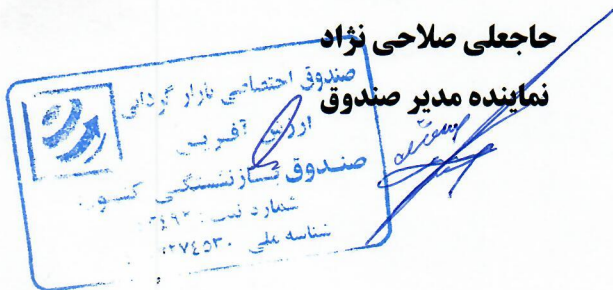 حاجعلی صلاحی نژاد
نماینده مدیر صندوق
صندوق اختصاصی بازار گردانی
ارزش آفرین
صندوق بازنشستگی کشوری
شماره ثبت :
شناسه ملی